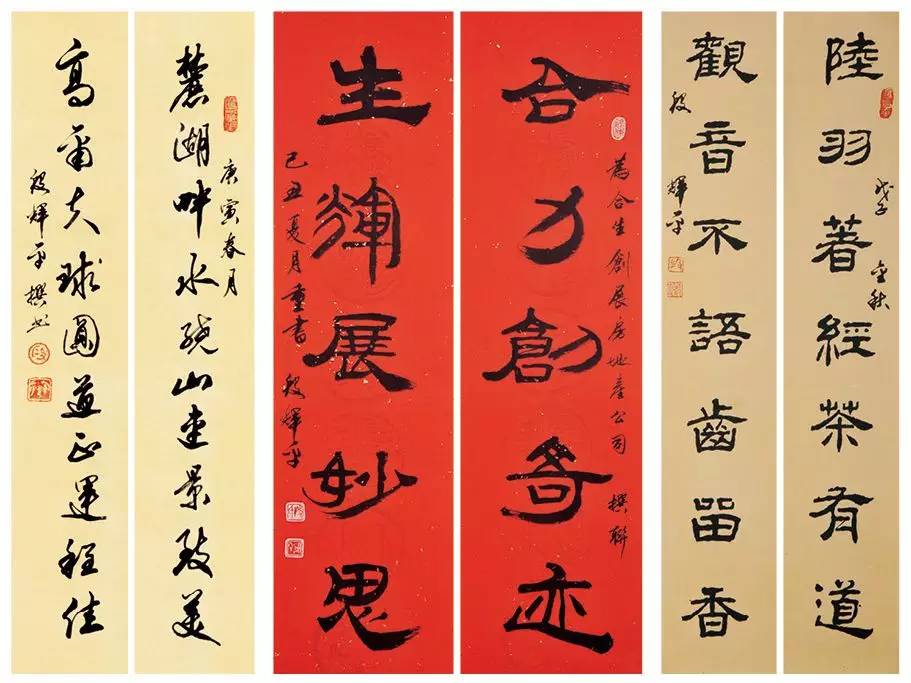 陸羽著經茶有道
戊子金秋
觀音不語齒留香
段輝平
合力創奇迹
為合生創展房地產公司 撰聯
生輝展妙思
己丑夏月重書 段輝平
麓湖畔水繞山連景致美
庚寅春月
高爾夫球圓道正運程佳
段輝平撰書